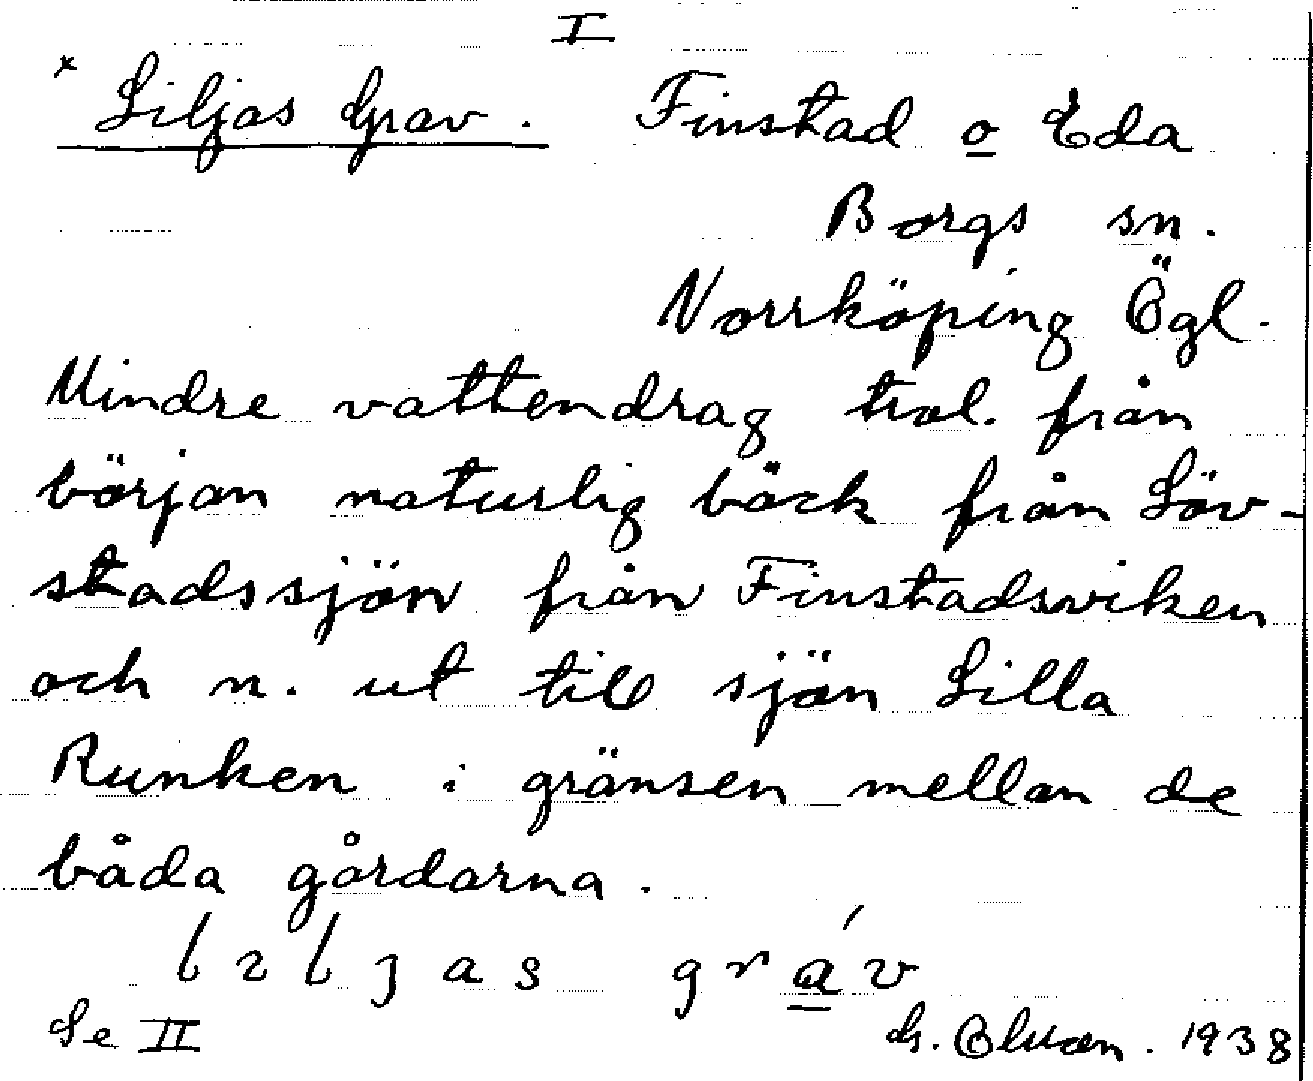 I
× Liljas Grav. Finstad o Eda
Borgs sn.
Norrköping Ögl.
Mindre vattendrag trol. från
början naturlig bäck från Löv-
stadssjön från Finstadsviken
och n. ut till sjön Lilla
Runken i gränsen mellan de
båda gårdarna.
lɩljas gráv
Se II G. 1938